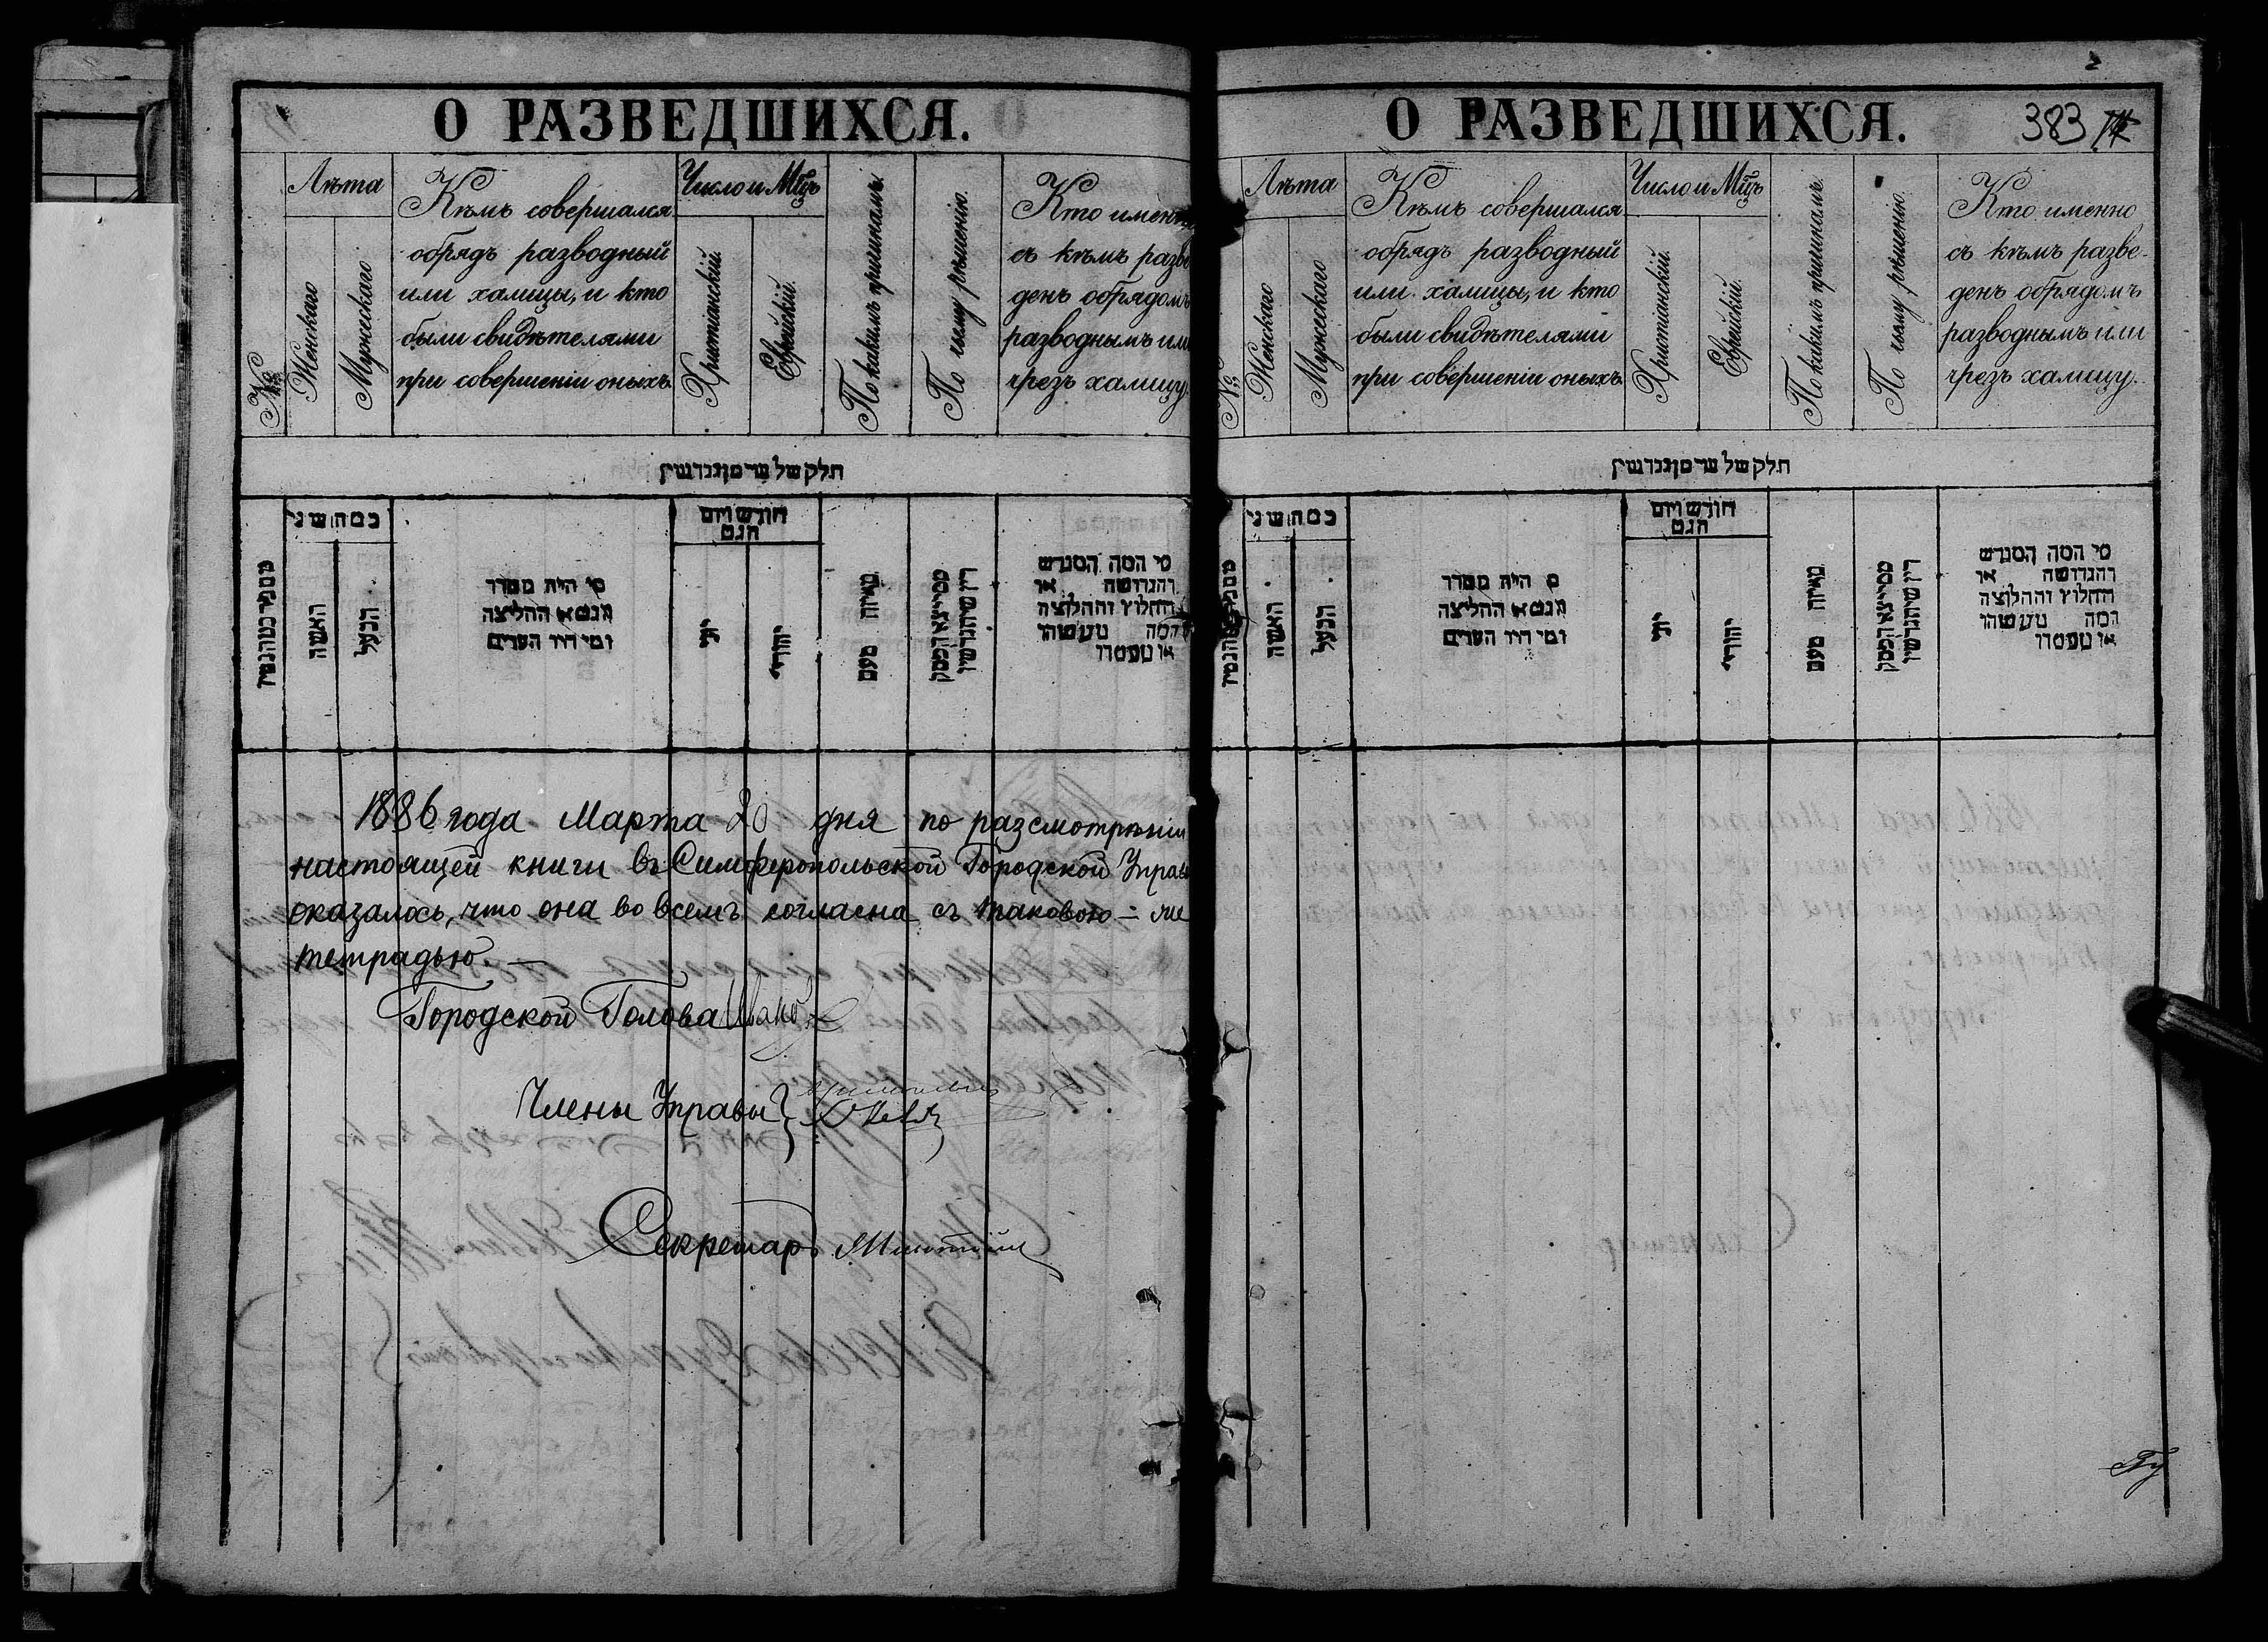 О РАЗВЕДШИХСЯ.
№
Лѣта
Женскаго
Мужескаго
Кѣмъ совершался
обрядъ разводный
или халицы, и кто
были свидѣтелями
при совершеніи оныхъ.
Число и Мѣцъ
Христіанскій.
Еврейскій.
По какимъ причинамъ.
По чьему рѣшенію.
Кто именно
съ кѣмъ разве
денъ обрядомъ
разводнымъ или
чрезъ халицу.
חלק של
כמה שני
האשה
הבעל
מי היה מסדר
הגט או החליצה
ומי היו העדים
חודש ויום
הגט
יוני
יהודי
מאיזה טעם
מי המה המגרש
והגרושה או
החולץ והחלוצה
1886 года Марта 20 дня по разсмотрѣніи
настоящей книги въ Симферопольской Городской Управѣ
оказалось, что она во всемъ согласна съ таковою – же
тетрадью –
Городской Голова Иванов
Члены Управы
Секретарь
О РАЗВЕДШИХСЯ.
383
№
Лѣта
Женскаго
Мужескаго
Кѣмъ совершался
обрядъ разводный
или халицы, и кто
были свидѣтелями
при совершеніи оныхъ.
Число и Мѣцъ
Христіанскій.
Еврейскій.
По какимъ причинамъ.
По чьему рѣшенію.
Кто именно
съ кѣмъ разве-
денъ обрядомъ
разводнымъ или
чрезъ халицу.
חלק של
כמה שני
האשה
הבעל
היה מסדר
הגט או החליצה
ומי היו העדים
חודש ויום
הגט
יוני
יהודי
מאיזה טעם
מי המה המגרש
והגרושה או
החולץ והחלוצה